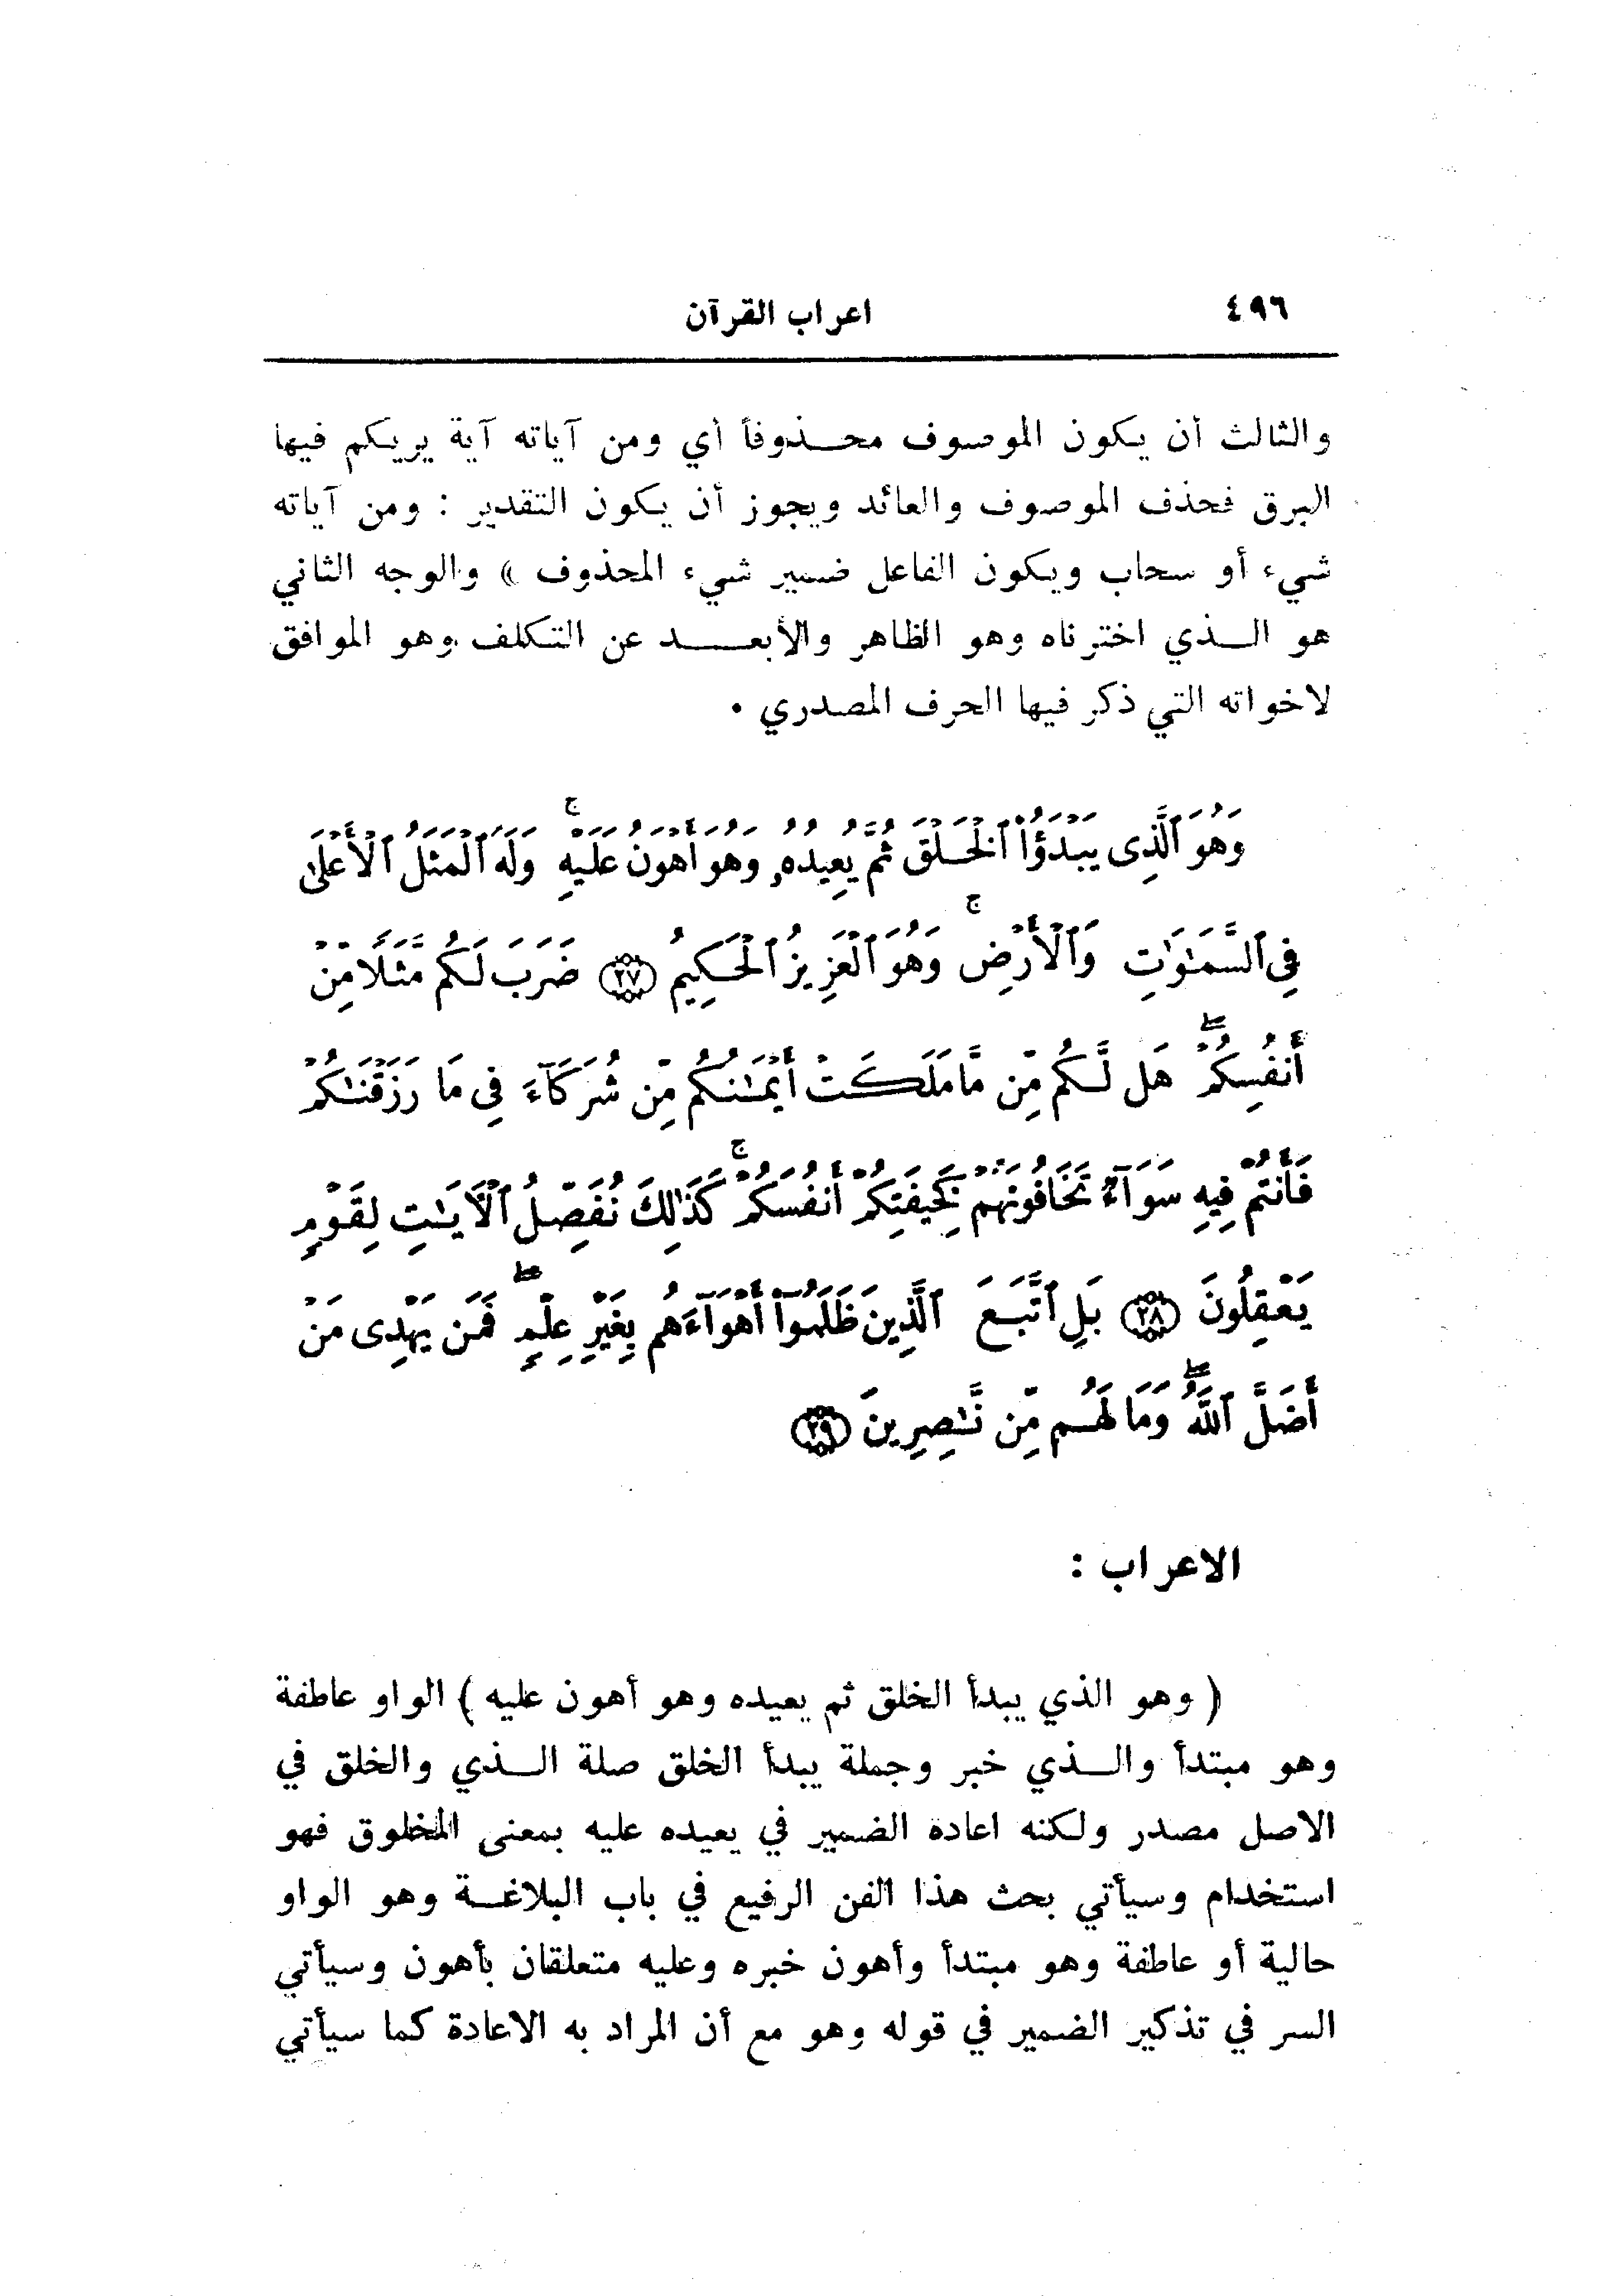 ٤٩٦ اعراب القرآن
والثالث أن يكون الموصوف محذوفاً أي ومن آياته آية يريكم فيها
البرق فحذف الموصوف والعائد ويجوز أن يكون التقدير : ومن آياته
شيء أو سحاب ويكون الفاعل ضمير شيء المحذوف » والوجه الثاني
هو الذي اخترناه وهو الظاهر والأبعد عن التكلف وهو الموافق
لاخواته التي ذكر فيها الحرف المصدري .
وَهُوَ ٱلَّذِى يَبْدَؤُا۟ ٱلْخَلْقَ ثُمَّ يُعِيدُهُۥ وَهُوَ أَهْوَنُ عَلَيْهِ ۚ وَلَهُ ٱلْمَثَلُ ٱلْأَعْلَىٰ
فِى ٱلسَّمَٰوَٰتِ وَٱلْأَرْضِ ۚ وَهُوَ ٱلْعَزِيزُ ٱلْحَكِيمُ ٢٧ ضَرَبَ لَكُم مَّثَلًا مِّنْ
أَنفُسِكُمْ ۖ هَل لَّكُم مِّن مَّا مَلَكَتْ أَيْمَٰنُكُم مِّن شُرَكَآءَ فِى مَا رَزَقْنَٰكُمْ
فَأَنتُمْ فِيهِ سَوَآءٌ تَخَافُونَهُمْ كَخِيفَتِكُمْ أَنفُسَكُمْ ۚ كَذَٰلِكَ نُفَصِّلُ ٱلْأَيَٰتِ لِقَوْمٍ
يَعْقِلُونَ ٢٨ بَلِ ٱتَّبَعَ ٱلَّذِينَ ظَلَمُوٓا۟ أَهْوَآءَهُم بِغَيْرِ عِلْمٍ ۖ فَمَن يَهْدِى مَنْ
أَضَلَّ ٱللَّهُ ۖ وَمَا لَهُم مِّن نَّٰصِرِينَ ٢٩
الاعراب :
( وهو الذي يبدأ الخلق ثم يعيده وهو أهون عليه ) الواو عاطفة
وهو مبتدأ والذي خبر وجملة يبدأ الخلق صلة الذي والخلق في
الاصل مصدر ولكنه اعادة الضمير في يعيده عليه بمعنى المخلوق فهو
استخدام وسيأتي بحث هذا الفن الرفيع في باب البلاغة وهو الواو
حالية أو عاطفة وهو مبتدأ وأهون خبره وعليه متعلقان بأهون وسيأتي
السر في تذكير الضمير في قوله وهو مع أن المراد به الاعادة كما سيأتي